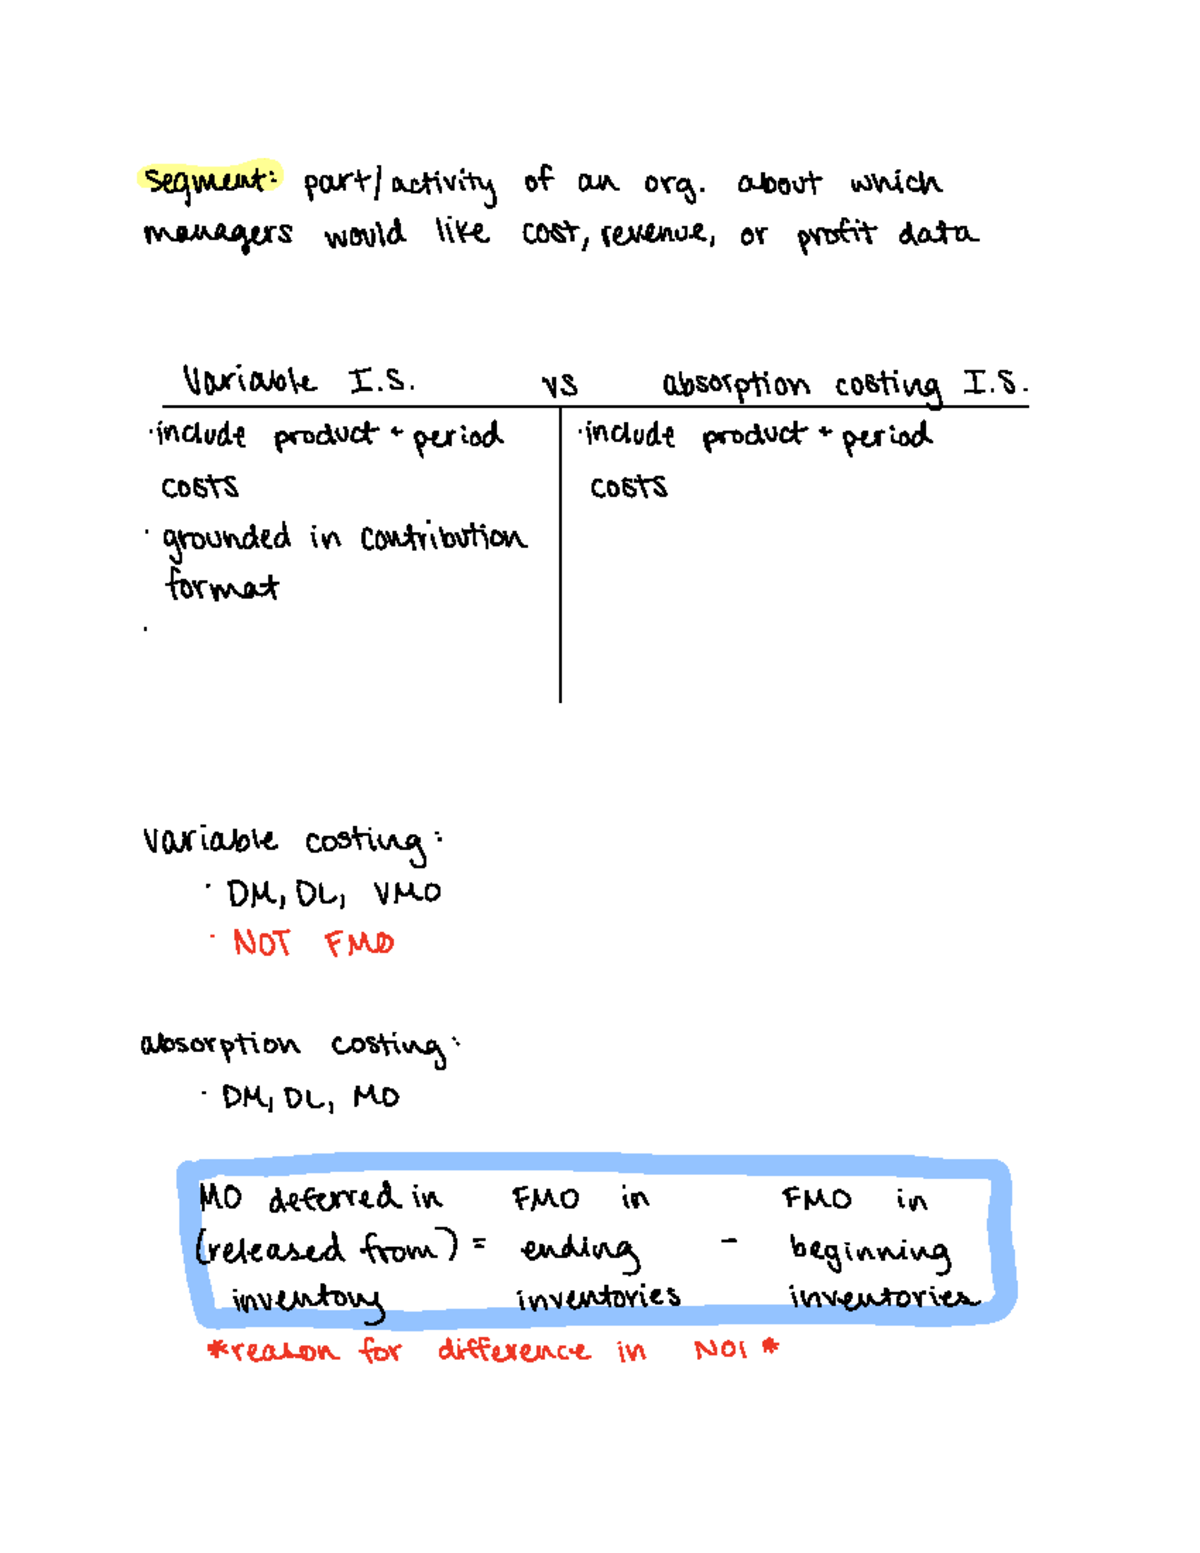 segment: part/activity of an org. about which
managers would like cost, revenue, or profit data
Variable I.S. vs absorption costing I.S.
·include product + period
costs
· grounded in contribution
format
·
·include product + period
costs
variable costing:
· DM, DL, VMO
· NOT FMO
absorption costing:
· DM, DL, MO
MO deferred in FMO in FMO in
(released from) = ending - beginning
inventory inventories inventories
*reason for difference in NOI *